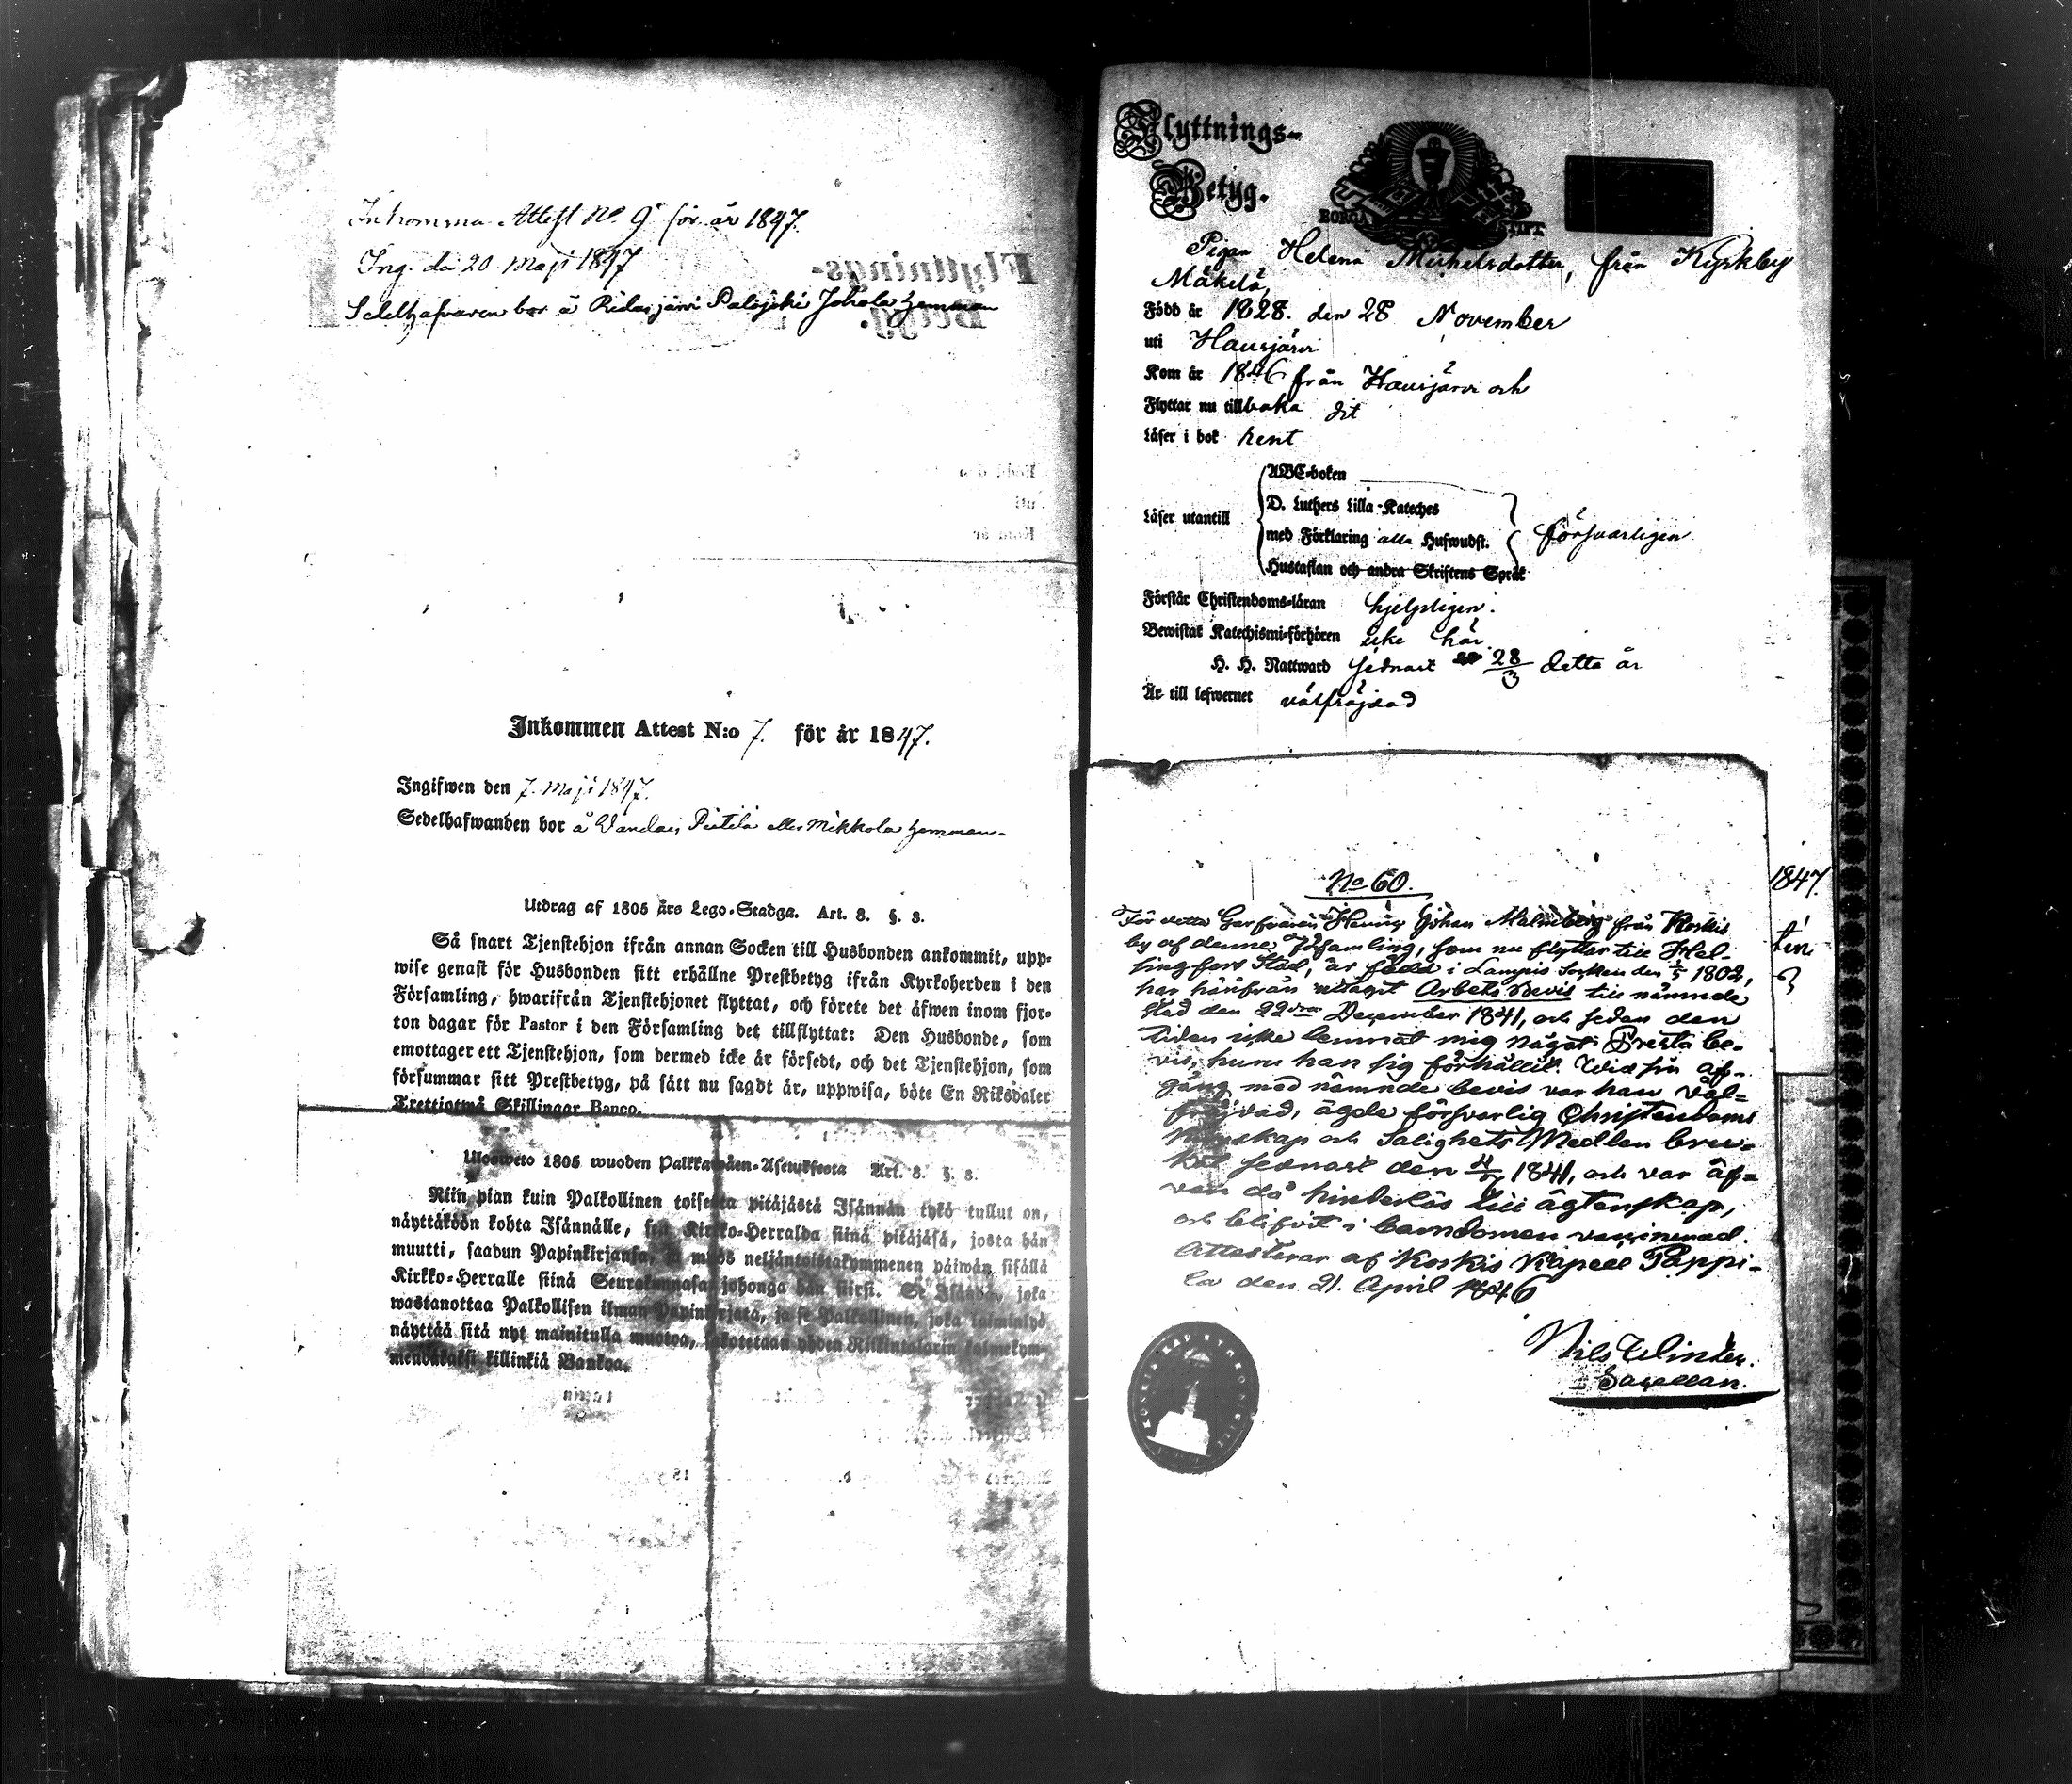 Inkomma Attest No. 9 för år 1847.
Ing. den 20 Maji 1847
Sedelhafvaren bor å Ridasjärvi Palojoki Johola hemman
Inkommen Attest N:o 7. för år 1847.
Ingifwen den 7. Maji 1847.
Sedelhafwanden bor å Vandais Pietilä eller Mikkola hemman.
Utdrag af 1805 års Lego-Stadga. Art. 8. §. 8.
Så snart Tjenstehjon ifrån annan Socken till Husbonden ankommit, upp-
wise genast för Husbonden sitt erhållne Prestbetyg ifrån Kyrkoherden i den
Församling, hwarifrån Tjenstehjonet flyttat, och förete det äfwen inom fjor-
ton dagar för Pastor i den Församling det tillflyttat: Den Husbonde, som
emottager ett Tjenstehjon, som dermed icke är försedt, och det Tjenstehjon, som
försummar sitt Prestbetyg, på sätt nu sagdt är, uppwisa, böte En Riksdaler
Trettiotwå Skillingar Banco.
Ulosweto 1805 wuoden Palkkawäen-Asetuksesta Art. 8. §. 8.
Niin pian kuin Palkollinen toisesta pitäjästä Isännän tykö tullut on,
näyttäköön kohta Isännälle, sen Kirkko-Herralda siinä pitäjäsä, josta hän
muutti, saadun Papinkirjansa, ja myös neljäntoistakymmenen päiwän sisällä
Kirkko-Herralle siinä Seurakunnasa johonga hän siirsi. Se Isändä, joka
wastanottaa Palkollisen ilman Papinkirjata, ja se Palkollinen, joka laiminlyö
näyttää sitä nyt mainitulla muotoa, sakotetaan yhden Riikintalarin kolmekym-
mendäkaksi killinkiä Bankoa.
Flyttnings-
Betyg.
BORGÅ STIFT
Pigan Helena Michelsdotter, från Kyrkby
Mäkelä,
Född år 1828. den 28 November
uti Hausjärvi
Kom år 1846 från Hausjärvi och
Flyttar nu tillbaka dit
Läser i bok rent
ABC-boken
D. Luthers Lilla-Kateches
Läser utantill med Förklaring alla Hufwudst. försvarligen
Hustaflan och andra Skriftens Språk
Förstår Christendoms-läran hjelpligen.
Bewistat Katechismi-förhören icke här
H. H. Nattward sednast 28/3 detta år
Är till lefwernet välfräjdad
No 60.
För detta Garfvaren Henric Johan Malmberg från Koskis
by af denne Församling, som nu flyttar till Hel-
singfors Stad, är född i Lampis Socken den 1/5 1802,
har härifrån uttagit Arbets bevis till nämnde
stad den 22dra December 1841, och sedan den
tiden icke lemnat mig något Presta be-
vis, huru han sig förhållit. Wid sin af-
gång med nämnde bevis var han väl-
fräjdad, ägde försvarlig Christendoms
kunskap och Salighets Medlen bru-
kat sednast den 1841, och var äf-
ven då hinderlös till ägtenskap,
och blifvit i barndomen vaccinerad.
Attesterar af Koskis Kapell Pappi-
la den 21. April 1846
Nils Winter.
Sacellan.
1847